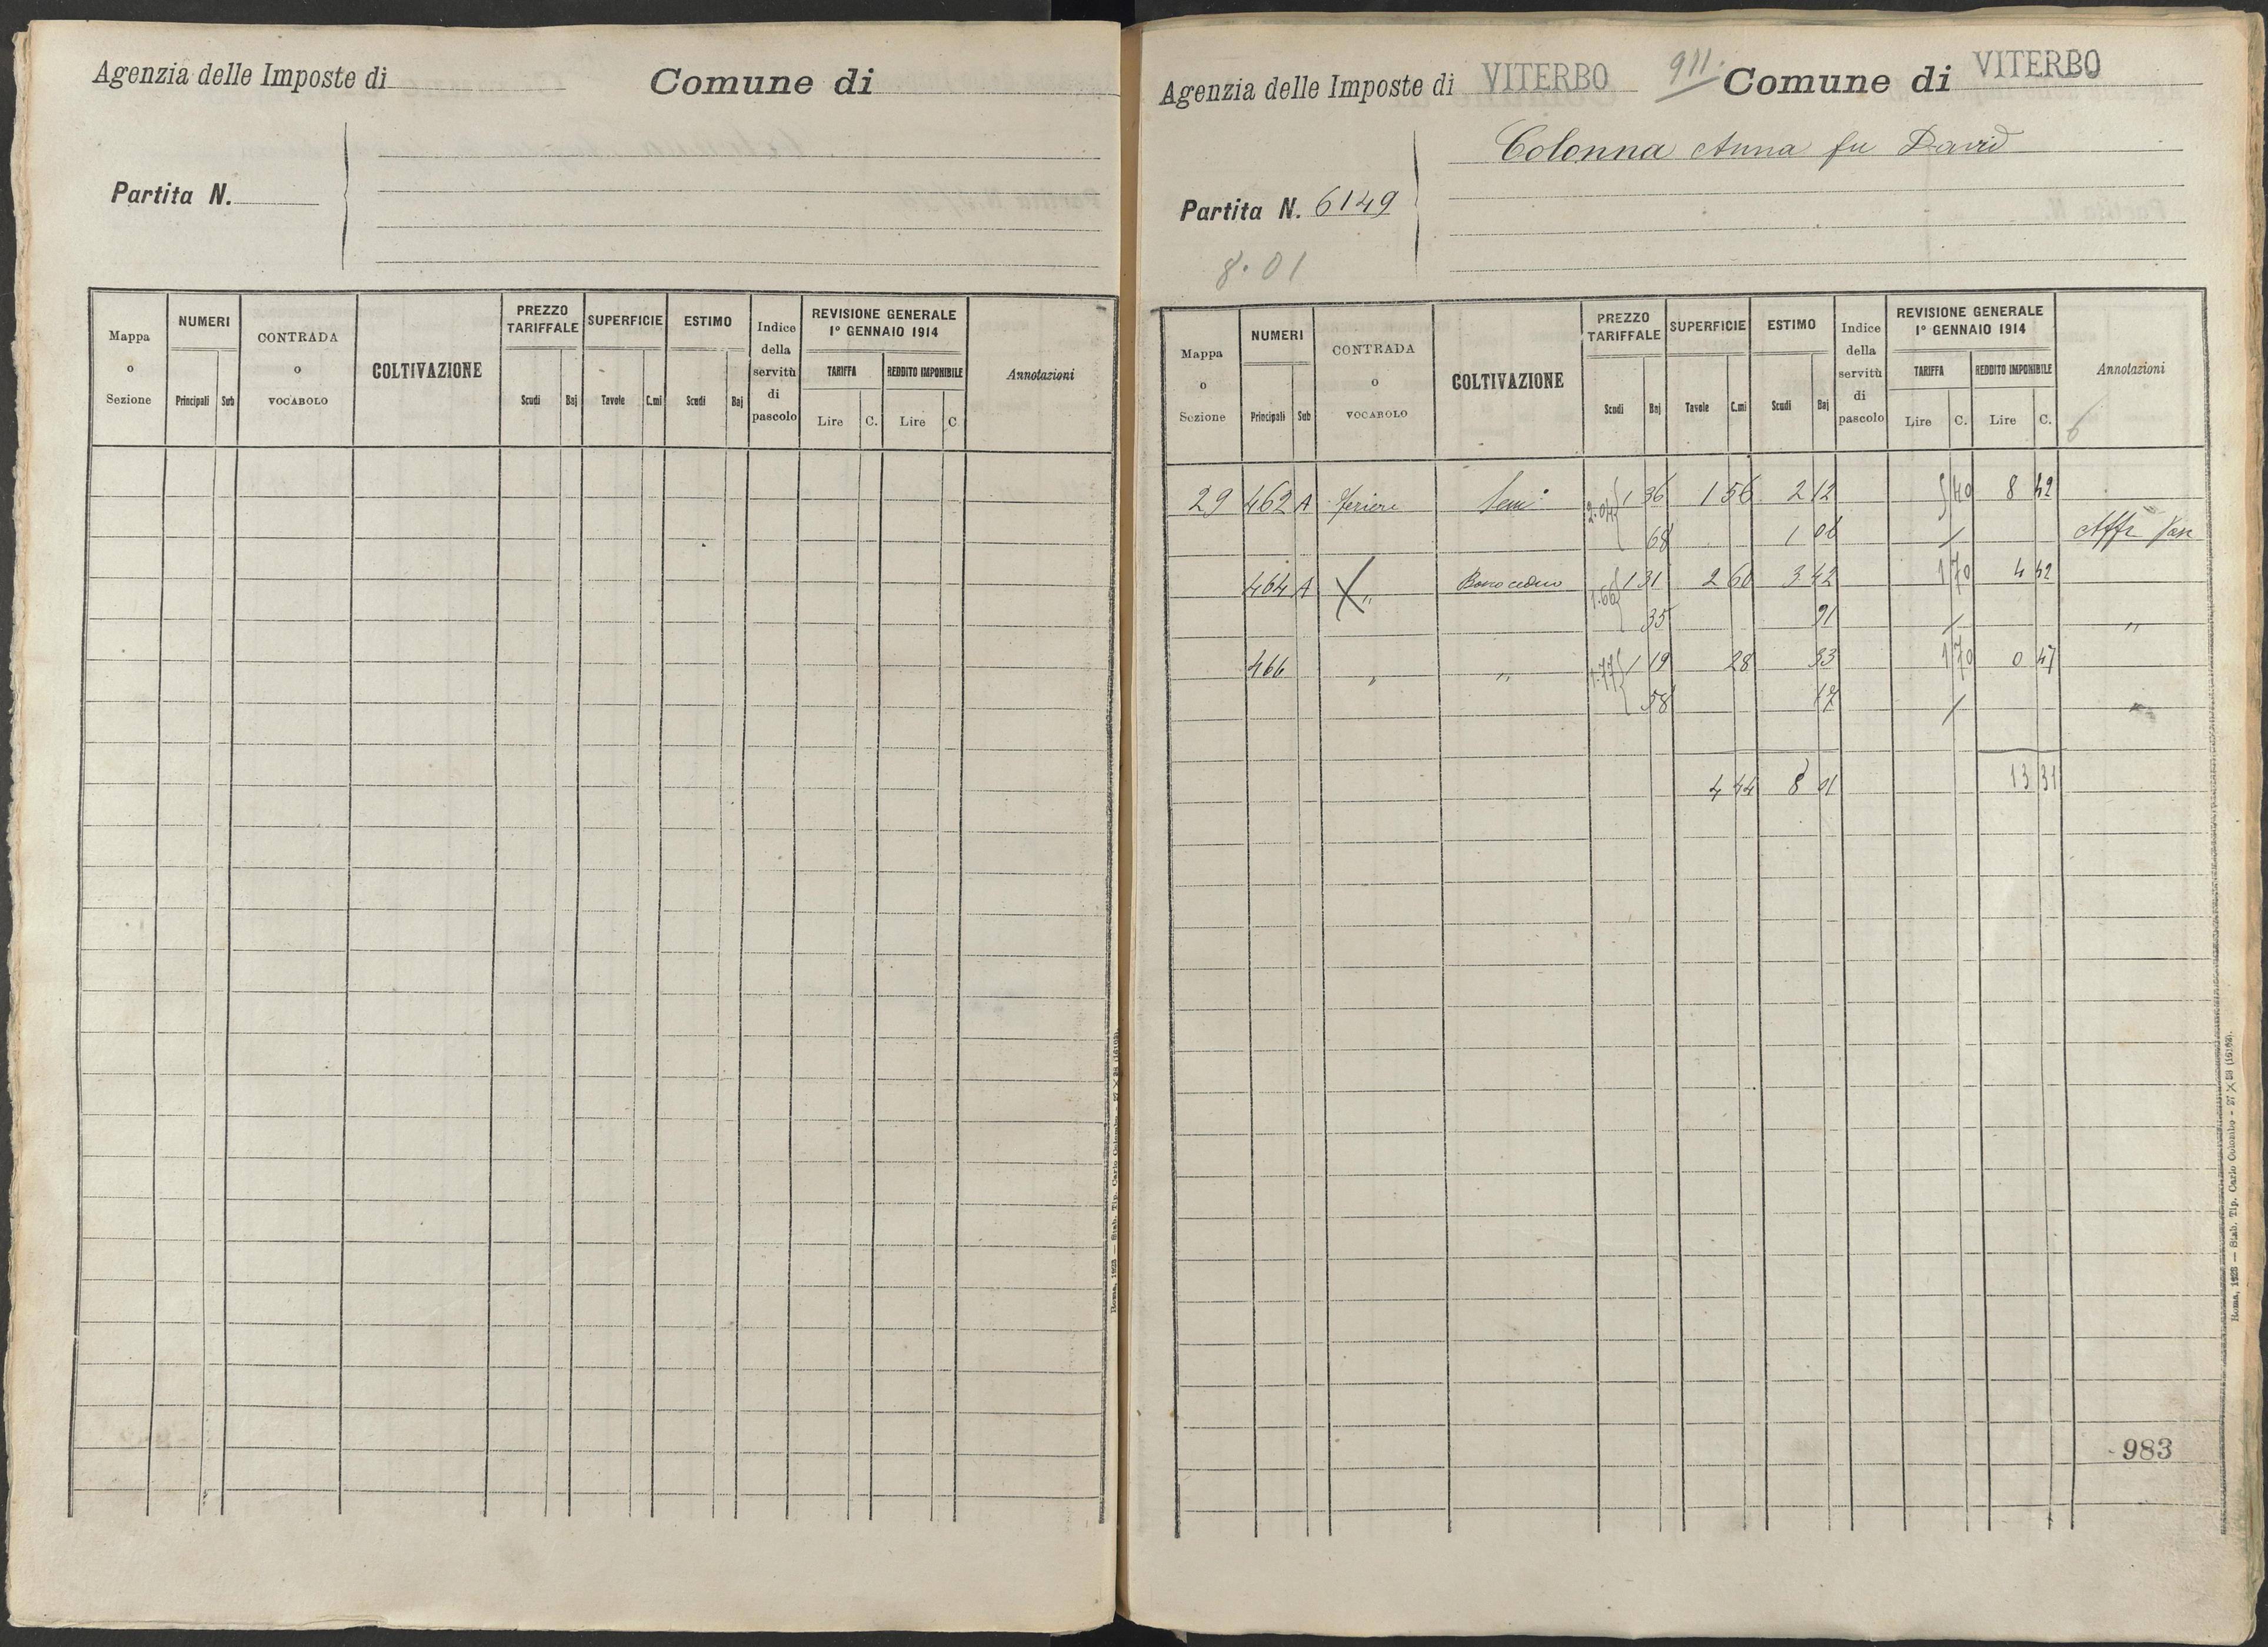 Agenzia delle Imposte di Comune di
Partita N.
Mappa o Sezione NUMERI Principali Sub CONTRADA o VOCABOLO COLTIVAZIONE PREZZO TARIFFALE Scudi Baj SUPERFICIE Tavole C.mi ESTIMO Scudi Baj Indice della servitù di pascolo REVISIONE GENERALE 1° GENNAIO 1914 TARIFFA Lire C. REDDITO IMPONIBILE Lire C. Annotazioni
Roma, 1923 — Stab. Tip. Carlo Colombo - 27 X 23 (16103).
Agenzia delle Imposte di VITERBO 911. Comune di VITERBO
Colonna Anna fu David
Partita N. 6149
8.01
Mappa o Sezione NUMERI Principali Sub CONTRADA o VOCABOLO COLTIVAZIONE PREZZO TARIFFALE Scudi Baj SUPERFICIE Tavole C.mi ESTIMO Scudi Baj Indice della servitù di pascolo REVISIONE GENERALE 1° GENNAIO 1914 TARIFFA Lire C. REDDITO IMPONIBILE Lire C. Annotazioni
6
29 462 A Feriere Semi 2.04 1 36 1 56 2 12 5 40 8 42
68 1 06 / Affr Pasc
464 A X „ Bosco ceduo 1.66 1 31 2 60 3 42 1 70 4 42
35 91 / „
466 „ „ 1.77 1 19 28 33 1 70 0 47
58 17 / „
4 44 8 01 13 31
983
Roma, 1923 — Stab. Tip. Carlo Colombo - 27 X 23 (16103).